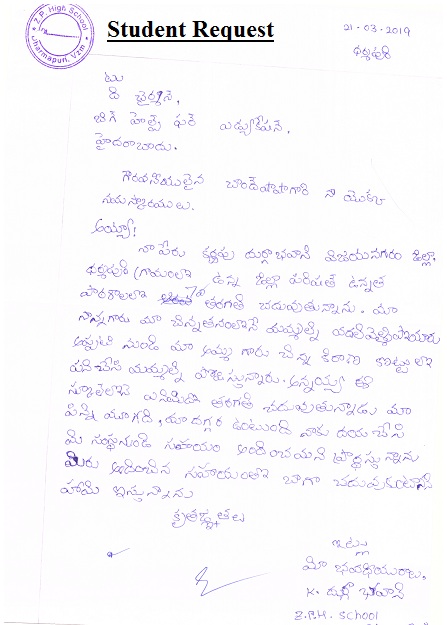 Z.P. High School
Dharmapuri, Vzm
Student Request
21-03-2019
ధర్మపురి
టు
ది ఛైర్మన్,
బిగ్ హెల్ప్ ఫర్ ఎడ్యుకేషన్,
హైదరాబాదు.
గౌరవనీయులైన చాంద్‌పాషాగారికి నా యొక్క
నమస్కారములు.
అయ్యా!
నా పేరు దుర్గాభవాని విజయనగరం జిల్లా
ధర్మపురి గ్రామంలో ఉన్న జిల్లా పరిషత్ ఉన్నత
పాఠశాలలో 7వ తరగతి చదువుతున్నాను. మా
నాన్నగారు మా చిన్నతనంలోనే మమ్మల్ని వదిలివెళ్ళిపోయారు
అప్పటి నుండి మా అమ్మ గారు చిన్న కిరాణా కొట్టులో
పనిచేసి మమ్మల్ని పోషిస్తున్నారు. అన్నయ్య ఈ
స్కూల్‌లోనే ఎనిమిదవ తరగతి చదువుతున్నాడు మా
పిన్ని మూగది, మా దగ్గర ఉంటుంది నాకు దయచేసి
మీ సంస్థనుండి సహాయం అందించమని ప్రార్థిస్తున్నాను
మీరు అందించిన సహాయంతో బాగా చదువుకుంటానని
హామీ ఇస్తున్నాను
కృతజ్ఞతలు
ఇట్లు
మీ భవదీయురాలు,
K. దుర్గా భవాని
Z.P.H. School